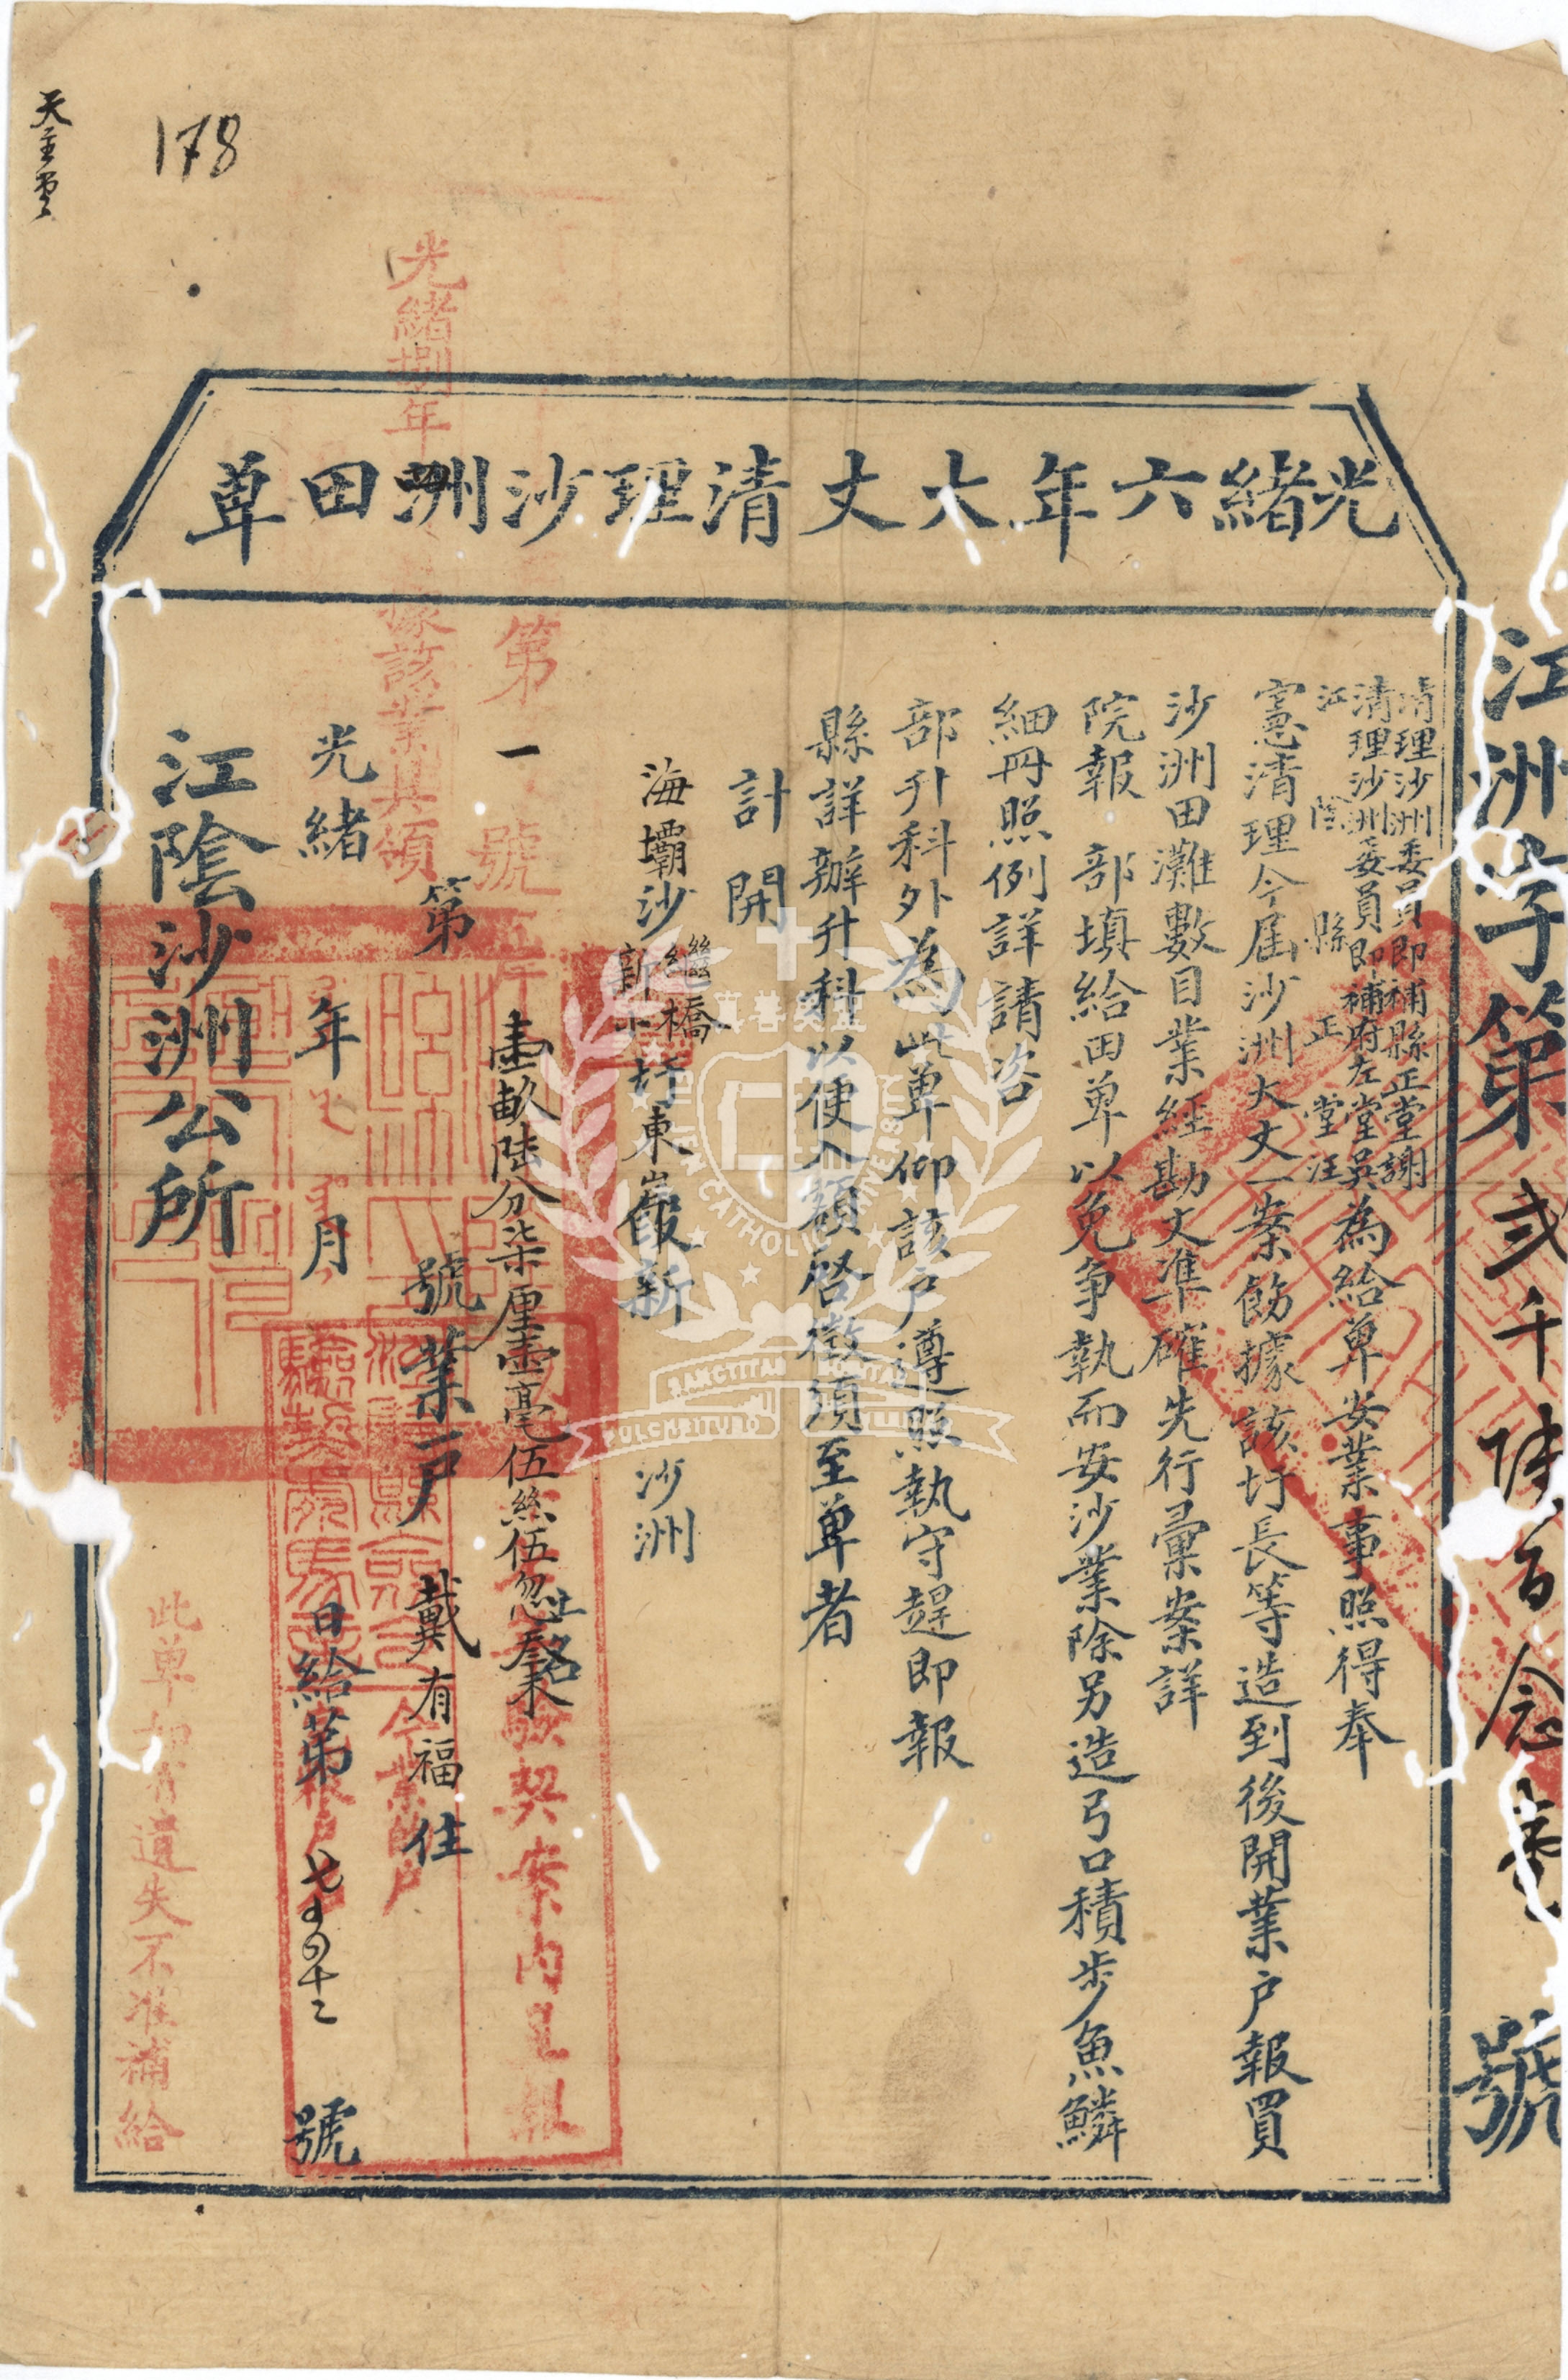 江洲字第貳千陸百念壹號
光緒六年大丈清理沙洲田單
清理沙洲委員即補縣正堂謝
清理沙洲委員即補府左堂吳
江陰縣正堂汪
為給單安業事照得奉
憲清理今屆沙洲大丈一案飭據該圩長等造到後開業户報買
沙洲田灘數目業經勘丈準確先行彙案詳
院報部填給田單以免爭執而安沙業除另造弓口積步魚鱗
細冊照例詳請咨
部升科外為此單仰該户遵照執守趕即報
縣詳辦升科以便入額啓徵須至單者
計開
海壩沙繼橋新圩東嚴假新沙洲
一壹畝陸分柒厘壹毫伍絲伍忽
第號業户戴有福住
光緒年月日給第號
江陰沙洲公所
光緒捌年
據該業具領
第號
江陰縣
契案內
此單如有遺失不准補給
178
天主堂
FU JEN CATHOLIC UNIVERSITY
SANCTITAS BONITAS
PULCHRITUDO VERITAS